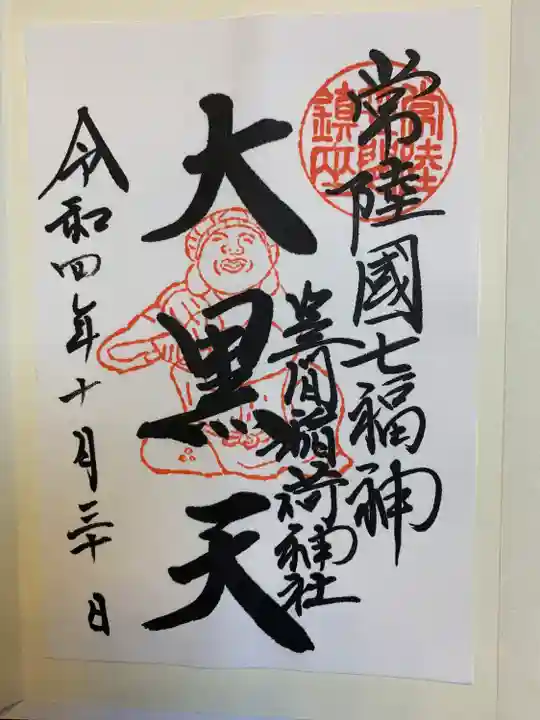 常陸國七福神
笠間稲荷神社
大黒天
令和四年十月三十日